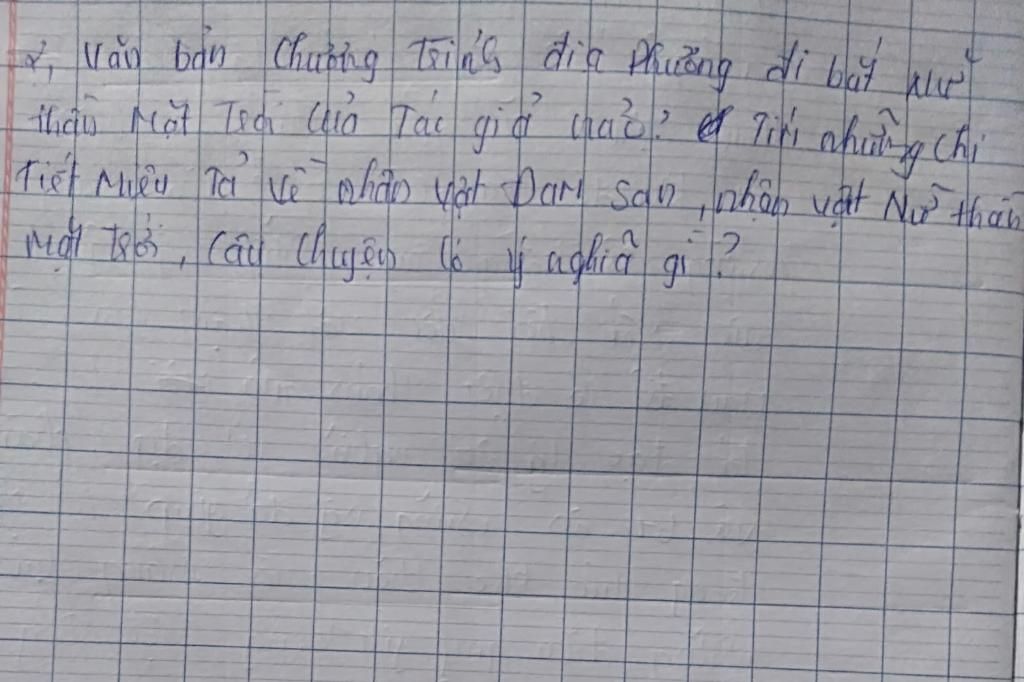 2, Văn bản chương trình địa phương đi bắt nữ
thần Mặt Trời của Tác giả nào? Tìm những chi
Tiết Miêu Tả về nhân vật Đam San, nhân vật Nữ thần
Mặt trời, câu chuyện có ý nghĩa gì?